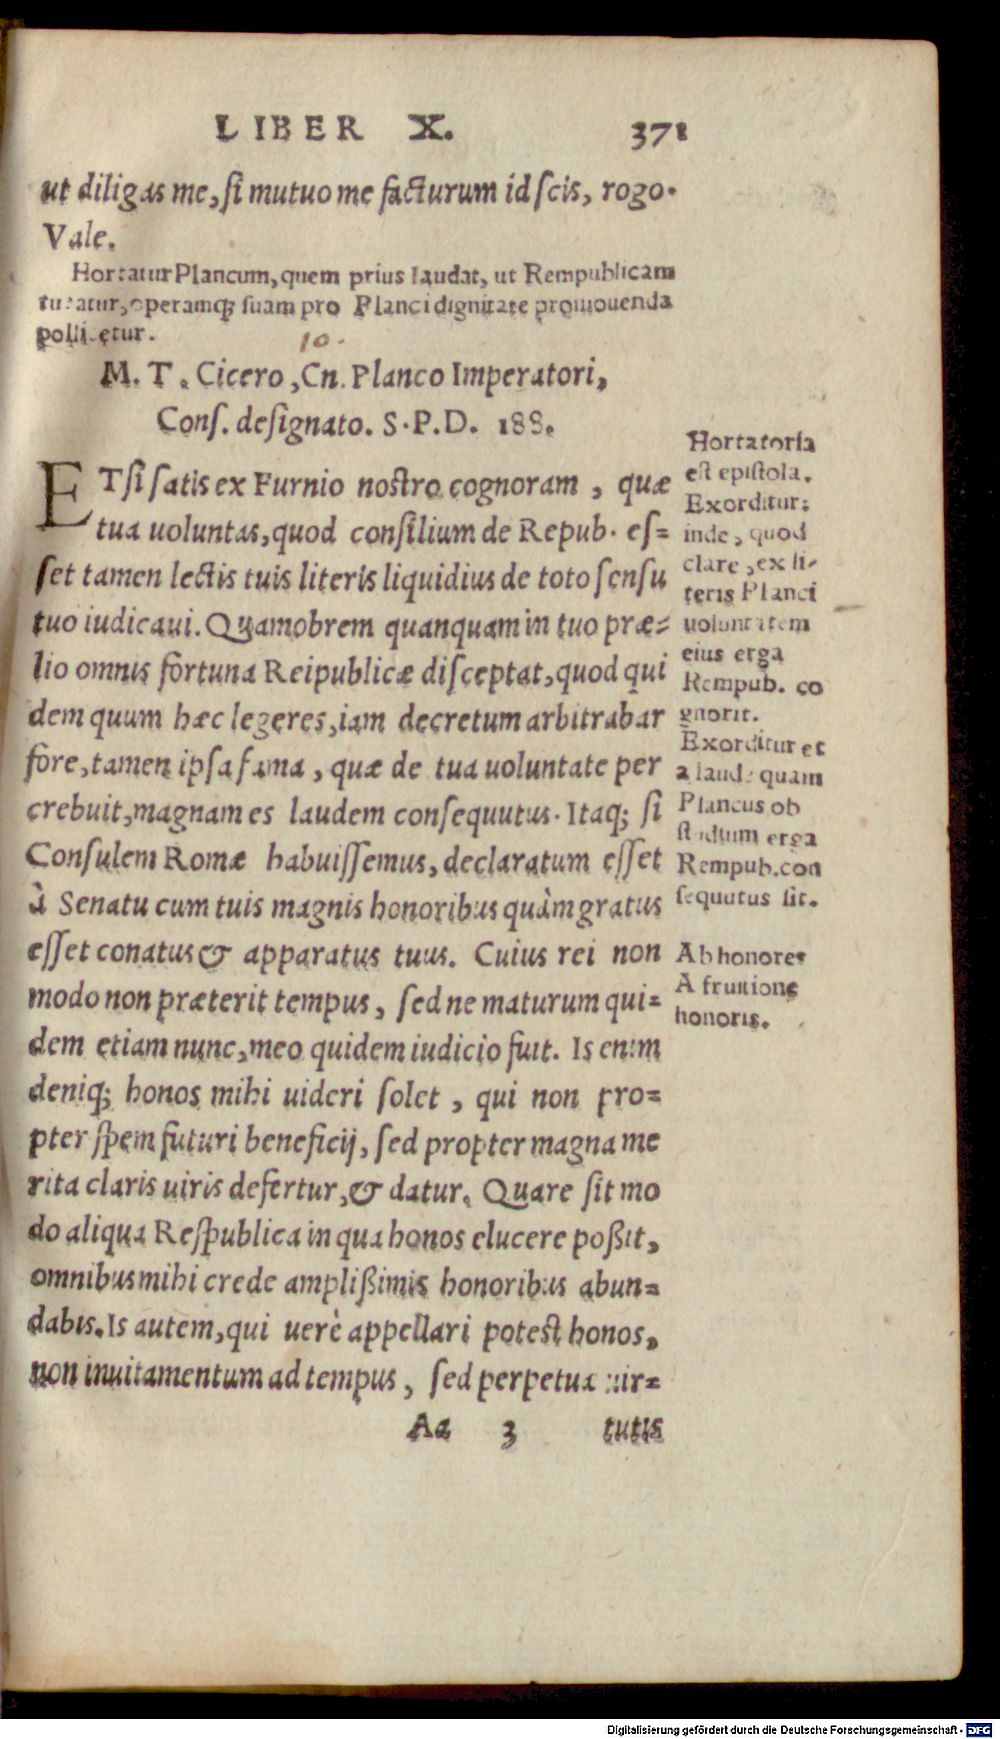 LIBER X. 371
ut diligas me, si mutuo me facturum id scis, rogo.
Vale.
Hortatur Plancum, quem prius laudat, ut Rempublicam
tueatur, operamq; suam pro Planci dignitate promouenda
pollicetur.
10.
M. T. Cicero, Cn. Planco Imperatori,
Cons. designato. S. P. D. 188.
ETsi satis ex Furnio nostro cognoram, quæ
tua uoluntas, quod consilium de Repub. es=
set tamen lectis tuis literis liquidius de toto sensu
tuo iudicaui. Quamobrem quanquam in tuo præ=
lio omnis fortuna Reipublicæ disceptat, quod qui
dem quum hæc legeres, iam decretum arbitrabar
fore, tamen ipsa fama, quæ de tua uoluntate per
crebuit, magnam es laudem consequutus. Itaq; si
Consulem Romæ habuissemus, declaratum esset
à Senatu cum tuis magnis honoribus quàm gratus
esset conatus & apparatus tuus. Cuius rei non
modo non præterit tempus, sed ne maturum qui=
dem etiam nunc, meo quidem iudicio fuit. Is enim
deniq; honos mihi uideri solet, qui non pro=
pter spem futuri beneficij, sed propter magna me
rita claris uiris defertur, & datur. Quare sit mo
do aliqua Respublica in qua honos elucere poßit,
omnibus mihi crede amplißimis honoribus abun=
dabis. Is autem, qui uerè appellari potest honos,
non inuitamentum ad tempus, sed perpetua uir=
Aa 3 tutis
Hortatoria
est epistola.
Exorditur:
inde, quod
clare, ex li-
teris Planci
uoluntatem
eius erga
Rempub. co
gnorit.
Exorditur et
a laude quam
Plancus ob
studium erga
Rempub. con
sequutus sit.
Ab honore.
A fruitione
honoris.
Digitalisierung gefördert durch die Deutsche Forschungsgemeinschaft - DFG